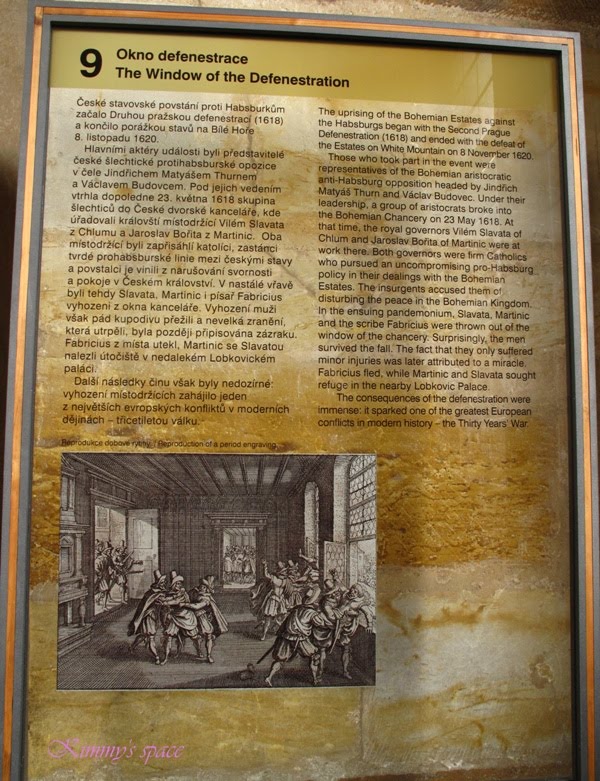 9
Okno defenestrace
The Window of the Defenestration
České stavovské povstání proti Habsburkům
začalo Druhou pražskou defenestrací (1618)
a končilo porážkou stavů na Bílé Hoře
8. listopadu 1620.
Hlavními aktéry události byli představitelé
české šlechtické protihabsburské opozice
v čele Jindřichem Matyášem Thurnem
a Václavem Budovcem. Pod jejich vedením
vtrhla dopoledne 23. května 1618 skupina
šlechticů do České dvorské kanceláře, kde
úřadovali královští místodržící Vilém Slavata
z Chlumu a Jaroslav Bořita z Martinic. Oba
místodržící byli zapřisáhlí katolíci, zastánci
tvrdé prohabsburské linie mezi českými stavy
a povstalci je vinili z narušování svornosti
a pokoje v Českém království. V nastálé vřavě
byli tehdy Slavata, Martinic i písař Fabricius
vyhozeni z okna kanceláře. Vyhození muži
však pád kupodivu přežili a nevelká zranění,
která utrpěli, byla později připisována zázraku.
Fabricius z místa utekl, Martinic se Slavatou
nalezli útočiště v nedalekém Lobkovickém
paláci.
Další následky činu však byly nedozírné:
vyhození místodržících zahájilo jeden
z největších evropských konfliktů v moderních
dějinách – třicetiletou válku.
The uprising of the Bohemian Estates against
the Habsburgs began with the Second Prague
Defenestration (1618) and ended with the defeat of
the Estates on White Mountain on 8 November 1620.
Those who took part in the event were
representatives of the Bohemian aristocratic
anti-Habsburg opposition headed by Jindřich
Matyáš Thurn and Václav Budovec. Under their
leadership, a group of aristocrats broke into
the Bohemian Chancery on 23 May 1618. At
that time, the royal governors Vilém Slavata of
Chlum and Jaroslav Bořita of Martinic were at
work there. Both governors were firm Catholics
who pursued an uncompromising pro-Habsburg
policy in their dealings with the Bohemian
Estates. The insurgents accused them of
disturbing the peace in the Bohemian Kingdom.
In the ensuing pandemonium, Slavata, Martinic
and the scribe Fabricius were thrown out of the
window of the chancery. Surprisingly, the men
survived the fall. The fact that they only suffered
minor injuries was later attributed to a miracle.
Fabricius fled, while Martinic and Slavata sought
refuge in the nearby Lobkovic Palace.
The consequences of the defenestration were
immense: it sparked one of the greatest European
conflicts in modern history – the Thirty Years' War.
Reprodukce dobové rytiny. / Reproduction of a period engraving.
Kimmy's space